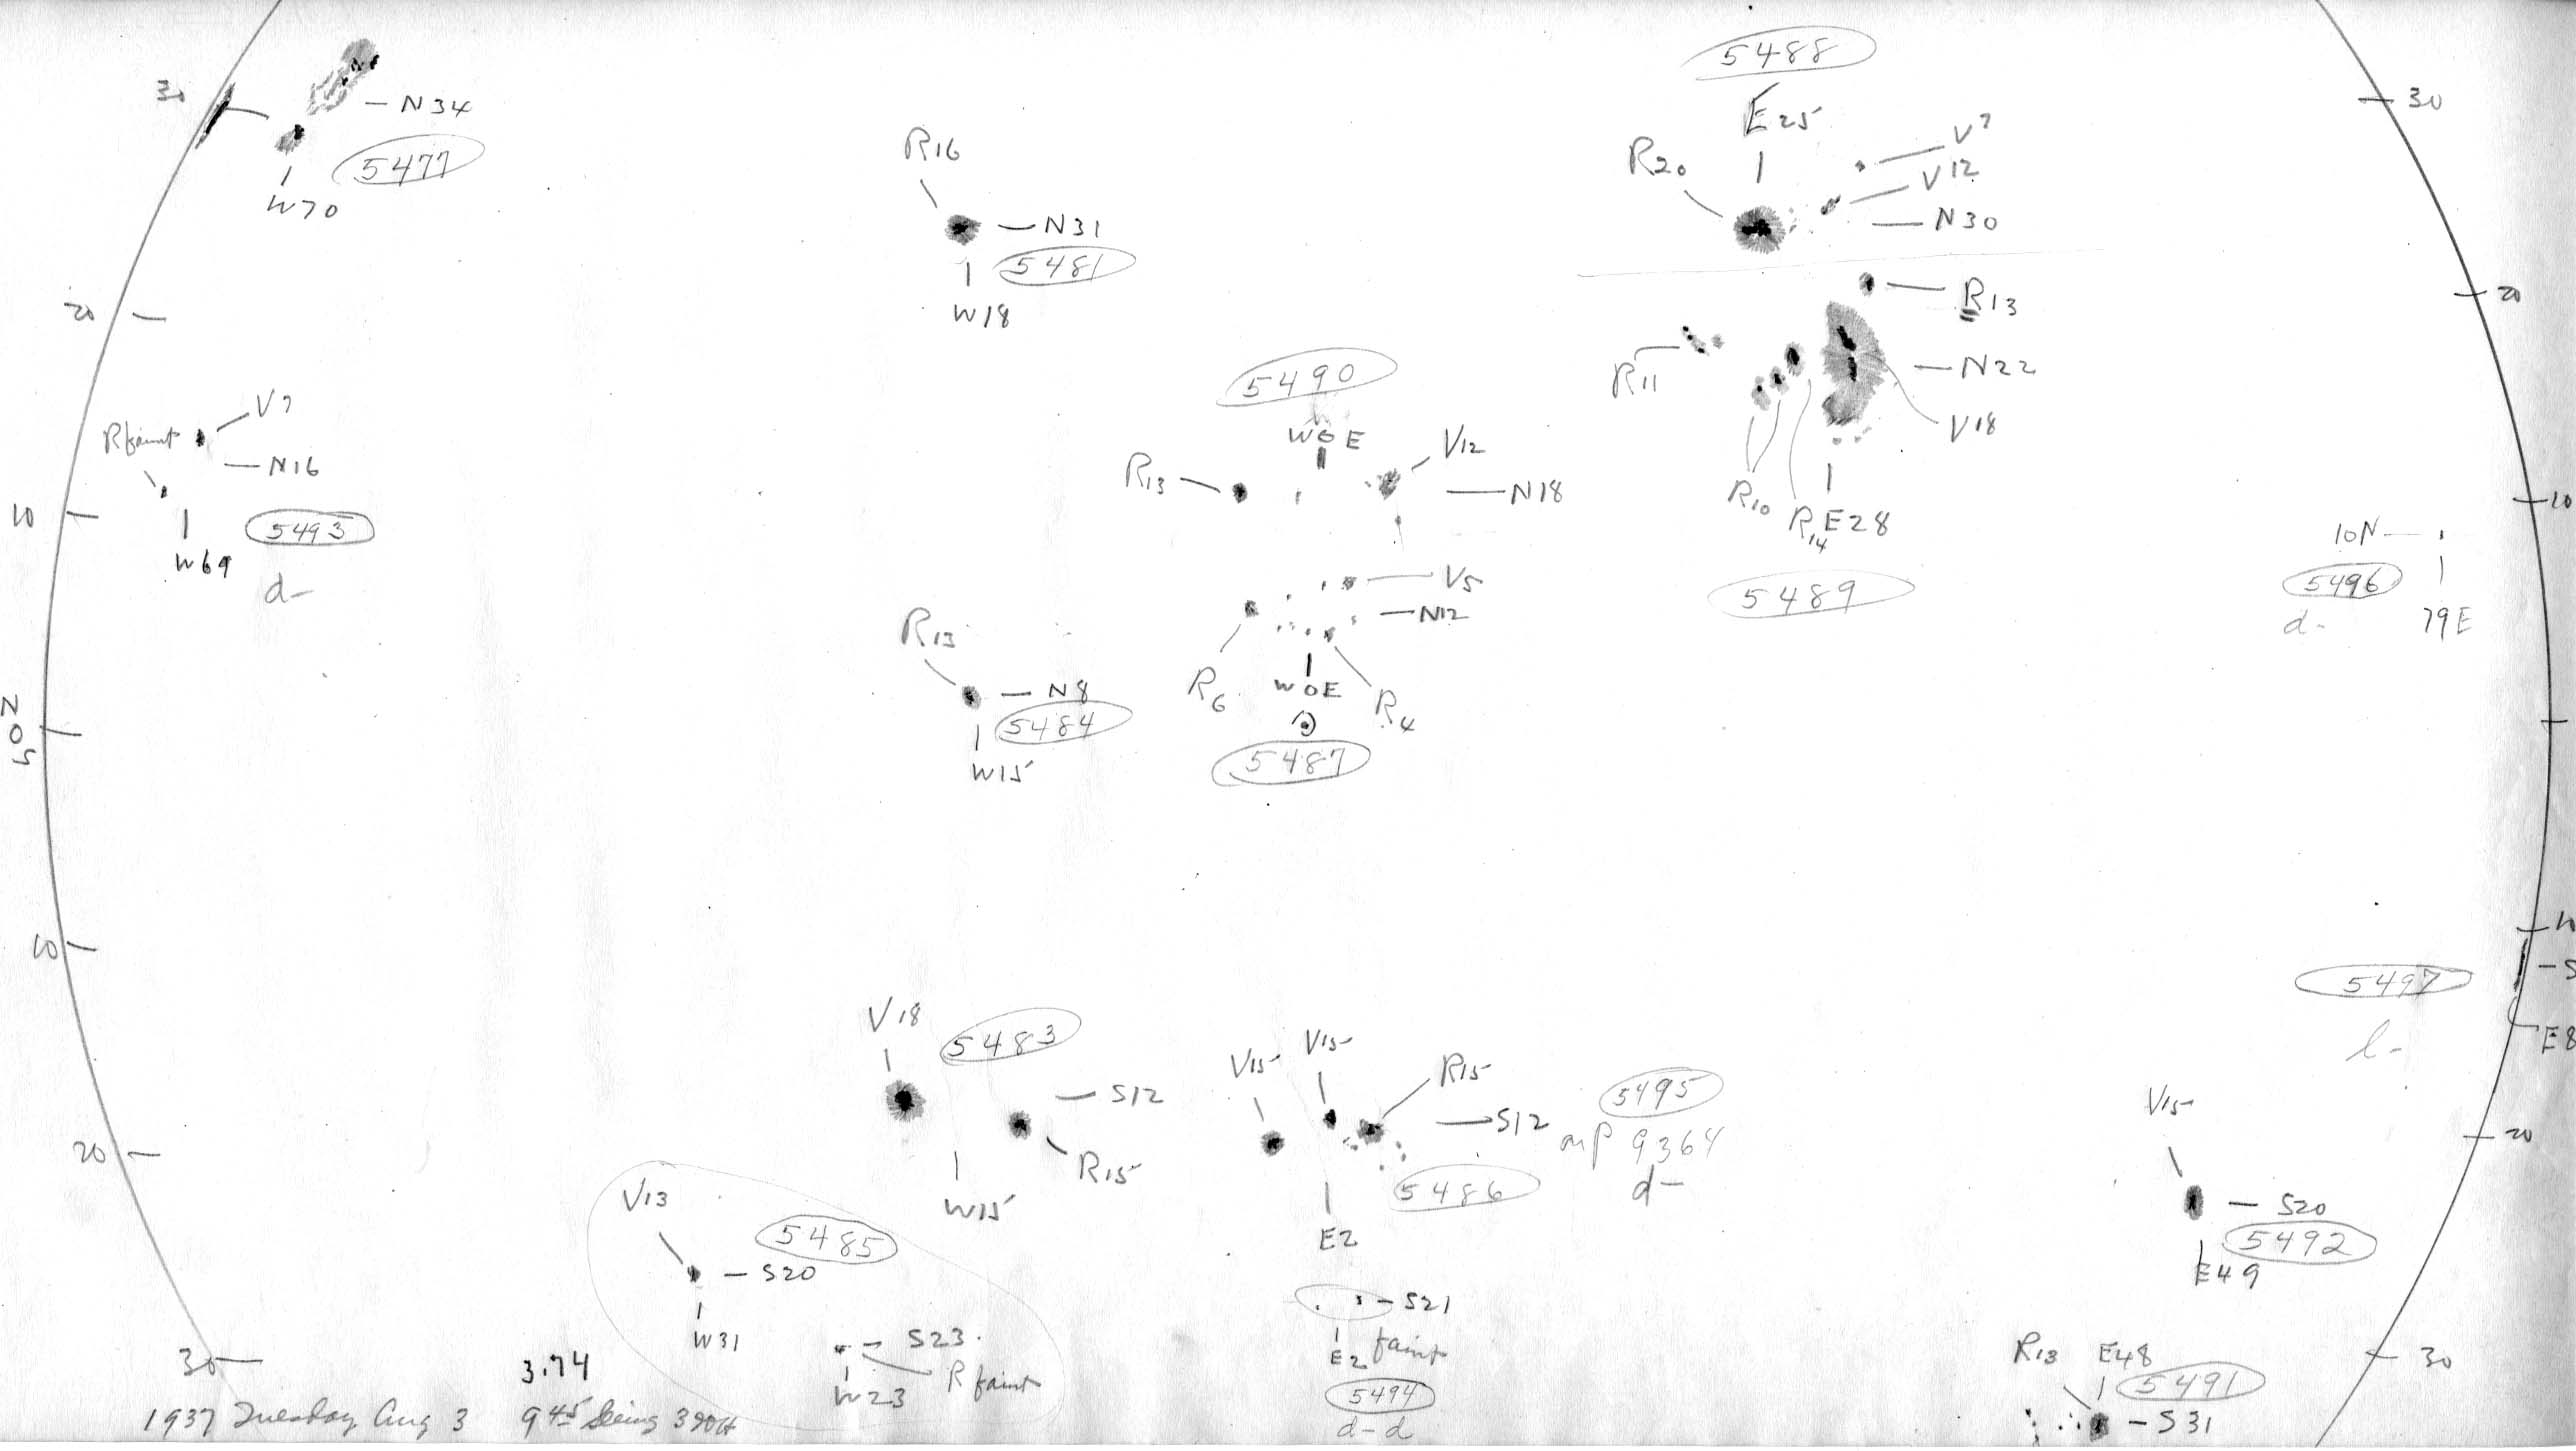 5488
30
N34
E25
30
V7
5477
R16
R20
V12
W70
N31
N30
5481
20
R13
20
W18
R11
N22
5490
V7
V18
R faint
W6E
V12
N16
R13
N18
R10
10
10
5493
R14
E28
10N
W69
V5
5489
5496
d-
N12
79E
d-
R13
R6
W0E
R4
N8
5484
5487
W15
N
0
S
10
10
5497
V18
5483
E8
V15
V15
R15
l-
S12
5495
S12
V15
mp 9364
20
R15
5486
d-
20
V13
W15
S20
5485
E2
5492
S20
E49
S21
W31
S23
E2 faint
R13
E48
30
30
3.74
W23
R faint
5494
5491
1937 Tuesday Aug 3
9 45 Seeing 3
d-d
S31